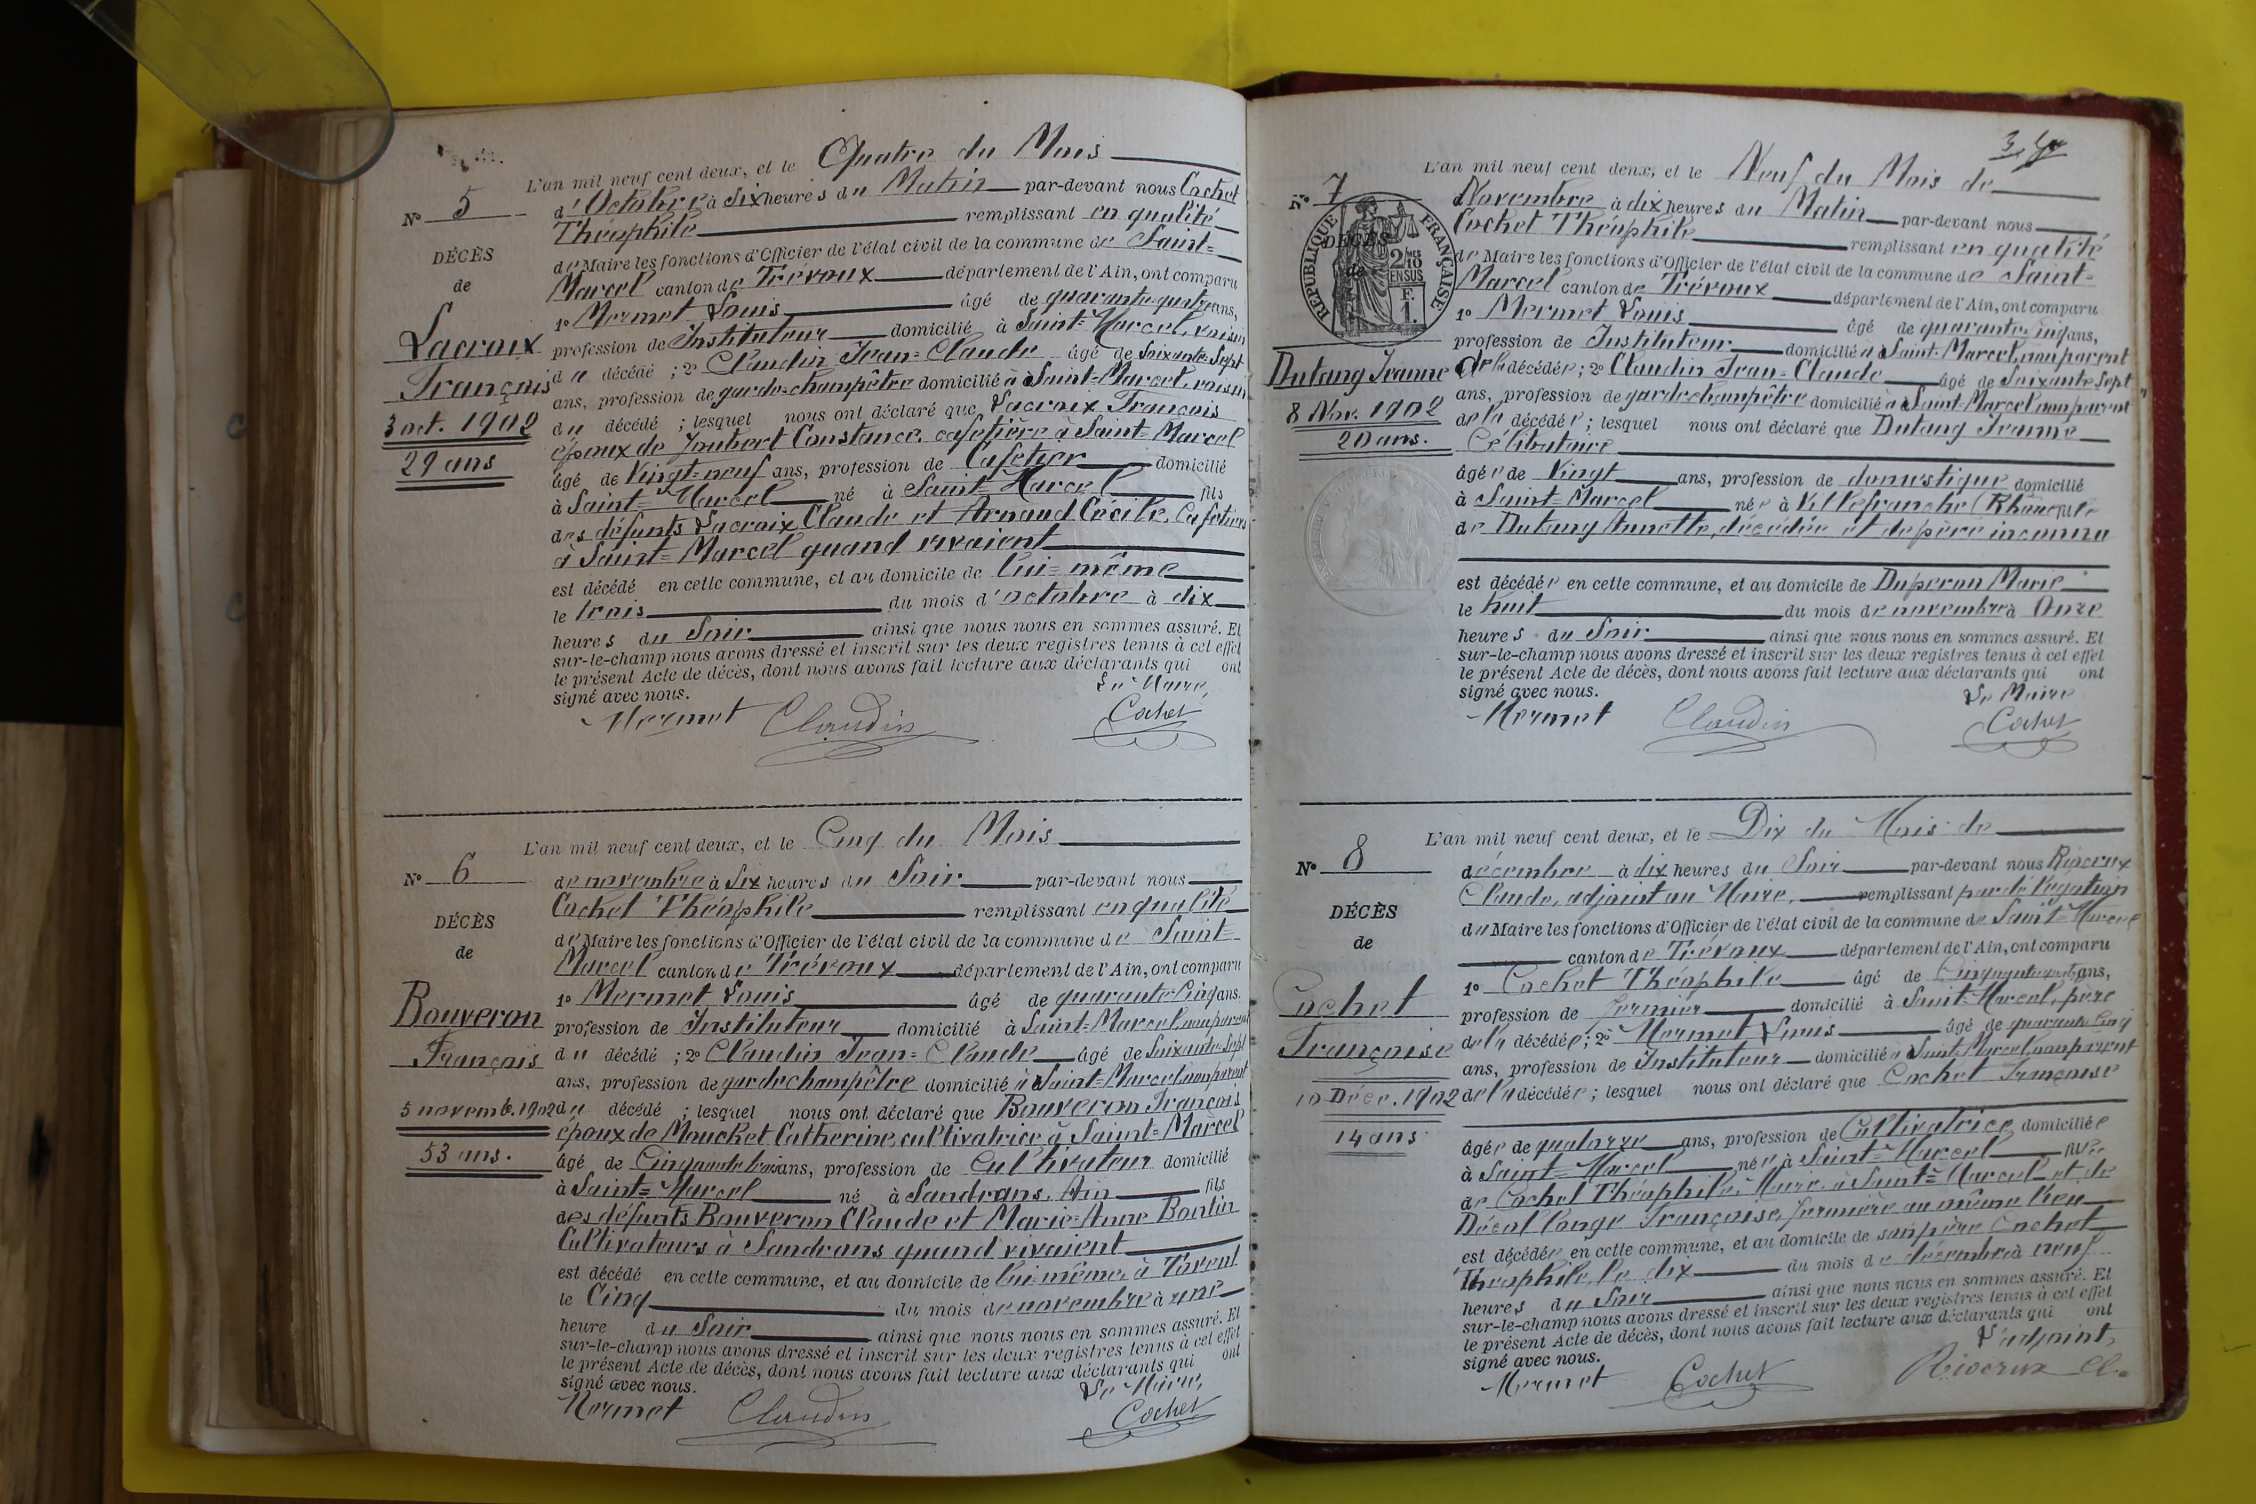 L'an mil neuf cent deux, et le Quatre du Mois
N° 5
d'Octobre à Six heures du Matin par-devant nous Cochet
Théophile remplissant en qualité
DÉCÈS
de Maire les fonctions d'Officier de l'état civil de la commune de Saint-
de
Marcel canton de Trévoux département de l'Ain, ont comparu
1° Mermet Louis âgé de quarante-quatre ans,
Lacroix
profession de Instituteur domicilié à Saint-Marcel, voisin
François
du décédé ; 2° Claudin Jean-Claude âgé de Soixante-Sept
ans, profession de garde-champêtre domicilié à Saint-Marcel, voisin
3 oct. 1902
du décédé ; lesquel nous ont déclaré que Lacroix François
époux de Joubert Constance, cafetière à Saint-Marcel
29 ans
âgé de Vingt-neuf ans, profession de Cafetier domicilié
à Saint-Marcel né à Saint-Marcel fils
des défunts Lacroix Claude et Arnaud Cécile, Cafetiers
à Saint-Marcel quand vivaient
est décédé en cette commune, et au domicile de lui-même
le trois du mois d'octobre à dix
heures du Soir ainsi que nous nous en sommes assuré. Et
sur-le-champ nous avons dressé et inscrit sur les deux registres tenus à cet effet
le présent Acte de décès, dont nous avons fait lecture aux déclarants qui ont
signé avec nous.
Le Maire,
Mermet Claudin Cochet
L'an mil neuf cent deux, et le Cinq du Mois
N° 6
de novembre à Six heures du Soir par-devant nous
Cochet Théophile remplissant en qualité
DÉCÈS
de Maire les fonctions d'Officier de l'état civil de la commune de Saint-
de
Marcel canton de Trévoux département de l'Ain, ont comparu
1° Mermet Louis âgé de quarante-Cinq ans.
Bouveron
profession de Instituteur domicilié à Saint-Marcel, non parent
François
du décédé ; 2° Claudin Jean-Claude âgé de Soixante-Sept
ans, profession de garde champêtre domicilié à Saint-Marcel non parent
5 novemb. 1902
du décédé ; lesquel nous ont déclaré que Bouveron François
époux de Mouchet Catherine, cultivatrice à Saint-Marcel
53 ans.
âgé de Cinquante trois ans, profession de Cultivateur domicilié
à Saint-Marcel né à Sandrans, Ain fils
des défunts Bouveron Claude et Marie-Anne Bontin
Cultivateurs à Sandrans quand vivaient
est décédé en cette commune, et au domicile de lui-même, à
le Cinq du mois de novembre à une
heure du Soir ainsi que nous nous en sommes assuré. Et
sur-le-champ nous avons dressé et inscrit sur les deux registres tenus à cet effet
le présent Acte de décès, dont nous avons fait lecture aux déclarants qui ont
signé avec nous.
Le Maire,
Mermet Claudin Cochet
L'an mil neuf cent deux, et le Neuf du Mois de
N° 7
Novembre à dix heures du Matin par-devant nous
Cochet Théophile remplissant en qualité
RÉPUBLIQUE FRANÇAISE
2 MES 10 EN SUS
F. 1.
DÉCÈS
de
de Maire les fonctions d'Officier de l'état civil de la commune de Saint-
Marcel canton de Trévoux département de l'Ain, ont comparu
1° Mermet Louis âgé de quarante-cinq ans,
profession de Instituteur domicilié à Saint-Marcel, non parent
Dutang Jeanne
de la décédée ; 2° Claudin Jean-Claude âgé de Soixante Sept
8 Nov. 1902
ans, profession de garde champêtre domicilié à Saint-Marcel non parent
20 ans.
de la décédée ; lesquel nous ont déclaré que Dutang Jeanne
Célibataire
âgée de Vingt ans, profession de domestique domicilié
à Saint-Marcel née à Villefranche (Rhône) fille
de Dutang Annette, décédée et de père inconnu
est décédée en cette commune, et au domicile de Duperon Marie
le huit du mois de novembre à Onze
heures du Soir ainsi que nous nous en sommes assuré. Et
sur-le-champ nous avons dressé et inscrit sur les deux registres tenus à cet effet
le présent Acte de décès, dont nous avons fait lecture aux déclarants qui ont
signé avec nous.
Le Maire
Mermet Claudin Cochet
L'an mil neuf cent deux, et le Dix du Mois de
N° 8
décembre à dix heures du Soir par-devant nous Rivoux
Claude, adjoint au Maire, remplissant par délégation
DÉCÈS
du Maire les fonctions d'Officier de l'état civil de la commune de Saint-Marcel
de
canton de Trévoux département de l'Ain, ont comparu
1° Cochet Théophile âgé de ans,
Cochet
profession de fermier domicilié à Saint-Marcel, père
Françoise
de la décédée ; 2° Mermet Louis âgé de quarante cinq
ans, profession de Instituteur domicilié à Saint-Marcel, non parent
10 Déce. 1902
de la décédée ; lesquel nous ont déclaré que Cochet Françoise
14 ans
âgée de quatorze ans, profession de Cultivatrice domiciliée
à Saint-Marcel née à Saint-Marcel fille
de Cochet Théophile, Maire à Saint-Marcel et de
Françoise, fermière au même lieu
est décédée en cette commune, et au domicile de son père Cochet
Théophile, le dix du mois de décembre à neuf
heures du Soir ainsi que nous nous en sommes assuré. Et
sur-le-champ nous avons dressé et inscrit sur les deux registres tenus à cet effet
le présent Acte de décès, dont nous avons fait lecture aux déclarants qui ont
signé avec nous.
L'adjoint,
Mermet Cochet